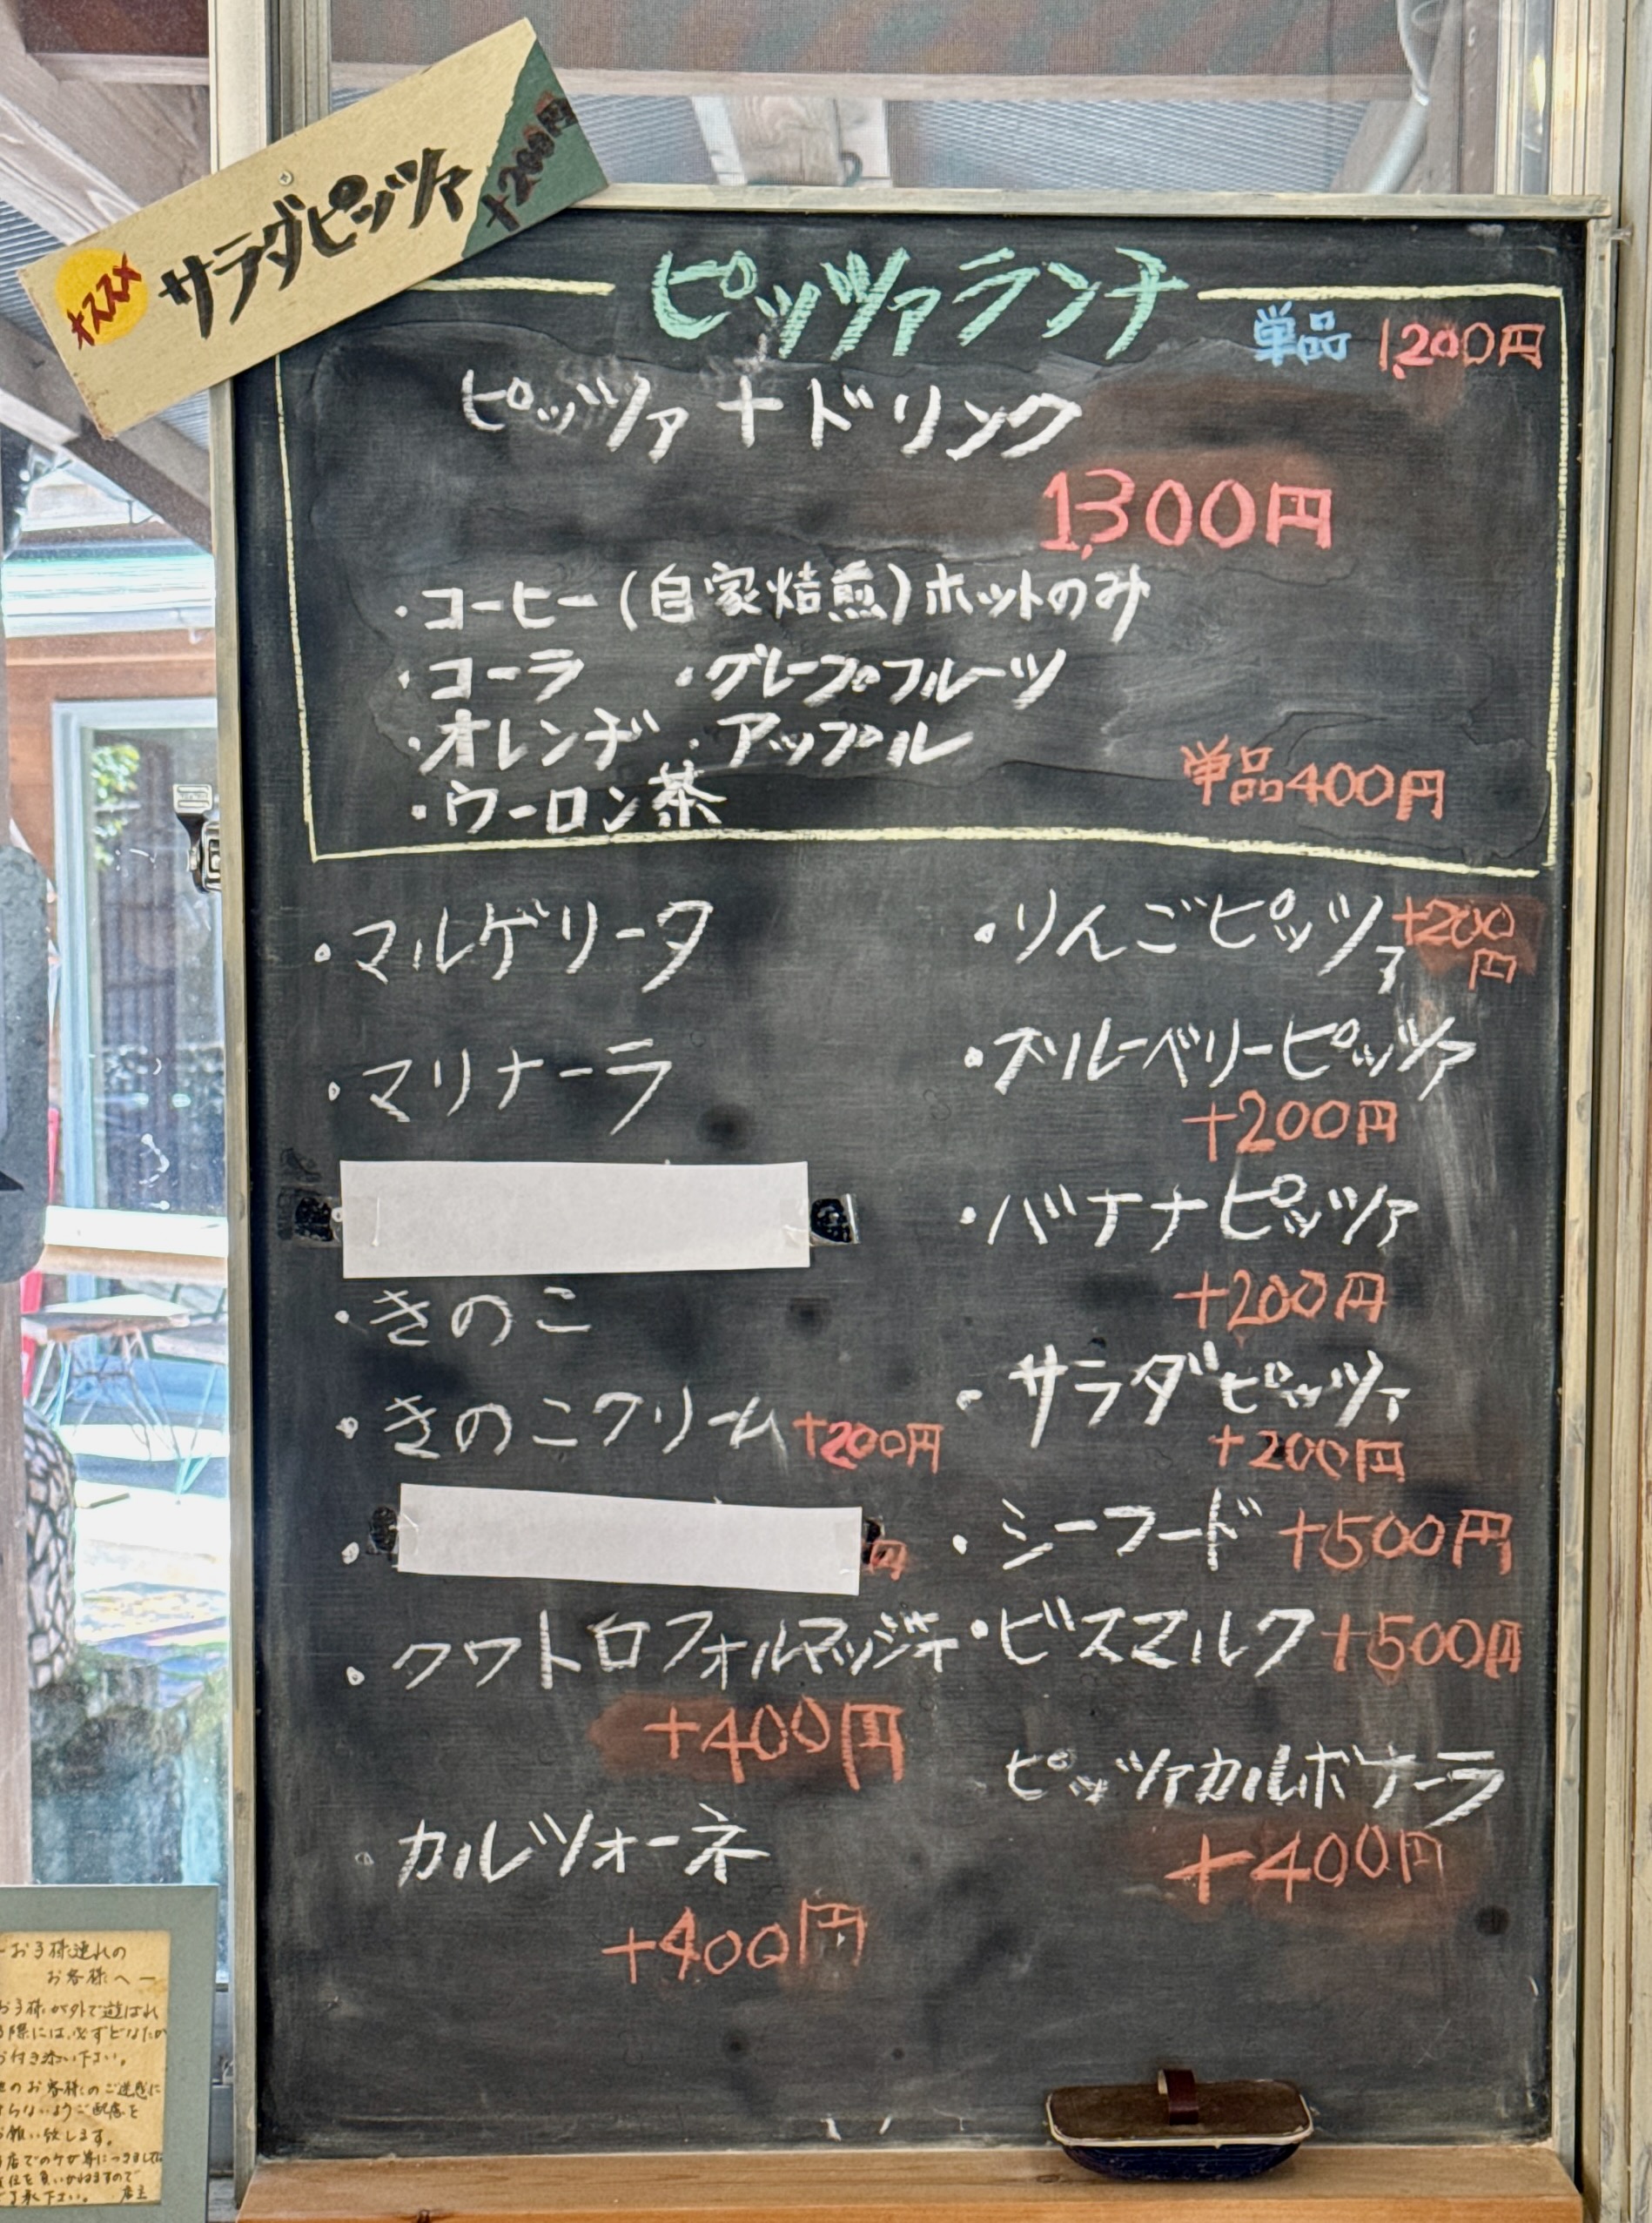 オススメ サラダピッツァ +200円
ピッツァランチ
単品 1,200円
ピッツァ+ドリンク
1,300円
・コーヒー(自家焙煎)ホットのみ
・コーラ ・グレープフルーツ
・オレンヂ ・アップル
・ウーロン茶
単品400円
・マルゲリータ
・マリナーラ
・きのこ
・きのこクリーム+200円
・ 円
・クワトロフォルマッジオ
+400円
・カルツォーネ
+400円
・りんごピッツァ+200円
・ブルーベリーピッツァ
+200円
・バナナピッツァ
+200円
・サラダピッツァ
+200円
・シーフード +500円
・ビスマルク+500円
ピッツァカルボナーラ
+400円
ーお子様連れの
お客様へー
お子様が外で遊ばれ
る際には、必ずどなたか
お付き添い下さい。
他のお客様のご迷惑に
ならないようご配慮を
お願い致します。
店でのケガ等につきまして
責任を負いかねますので
ご了承下さい。 店主